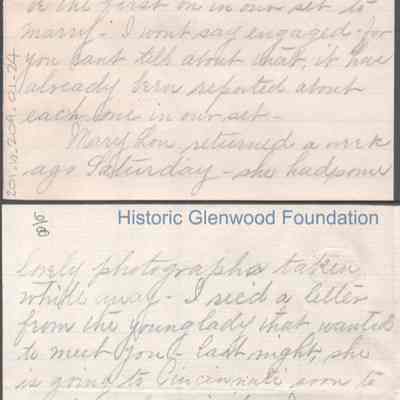 be the first on in our set to
marry - I wont say engaged - for
you cant tell about that, it has
already been reported about
each one in our set -
Mary Lou returned a week
ago Saturday - she had some
Historic Glenwood Foundation
lovely photographs taken
while away - I rec'd a letter
from the young lady that wanted
to meet you - last night, she
is going to Cincinnati soon to